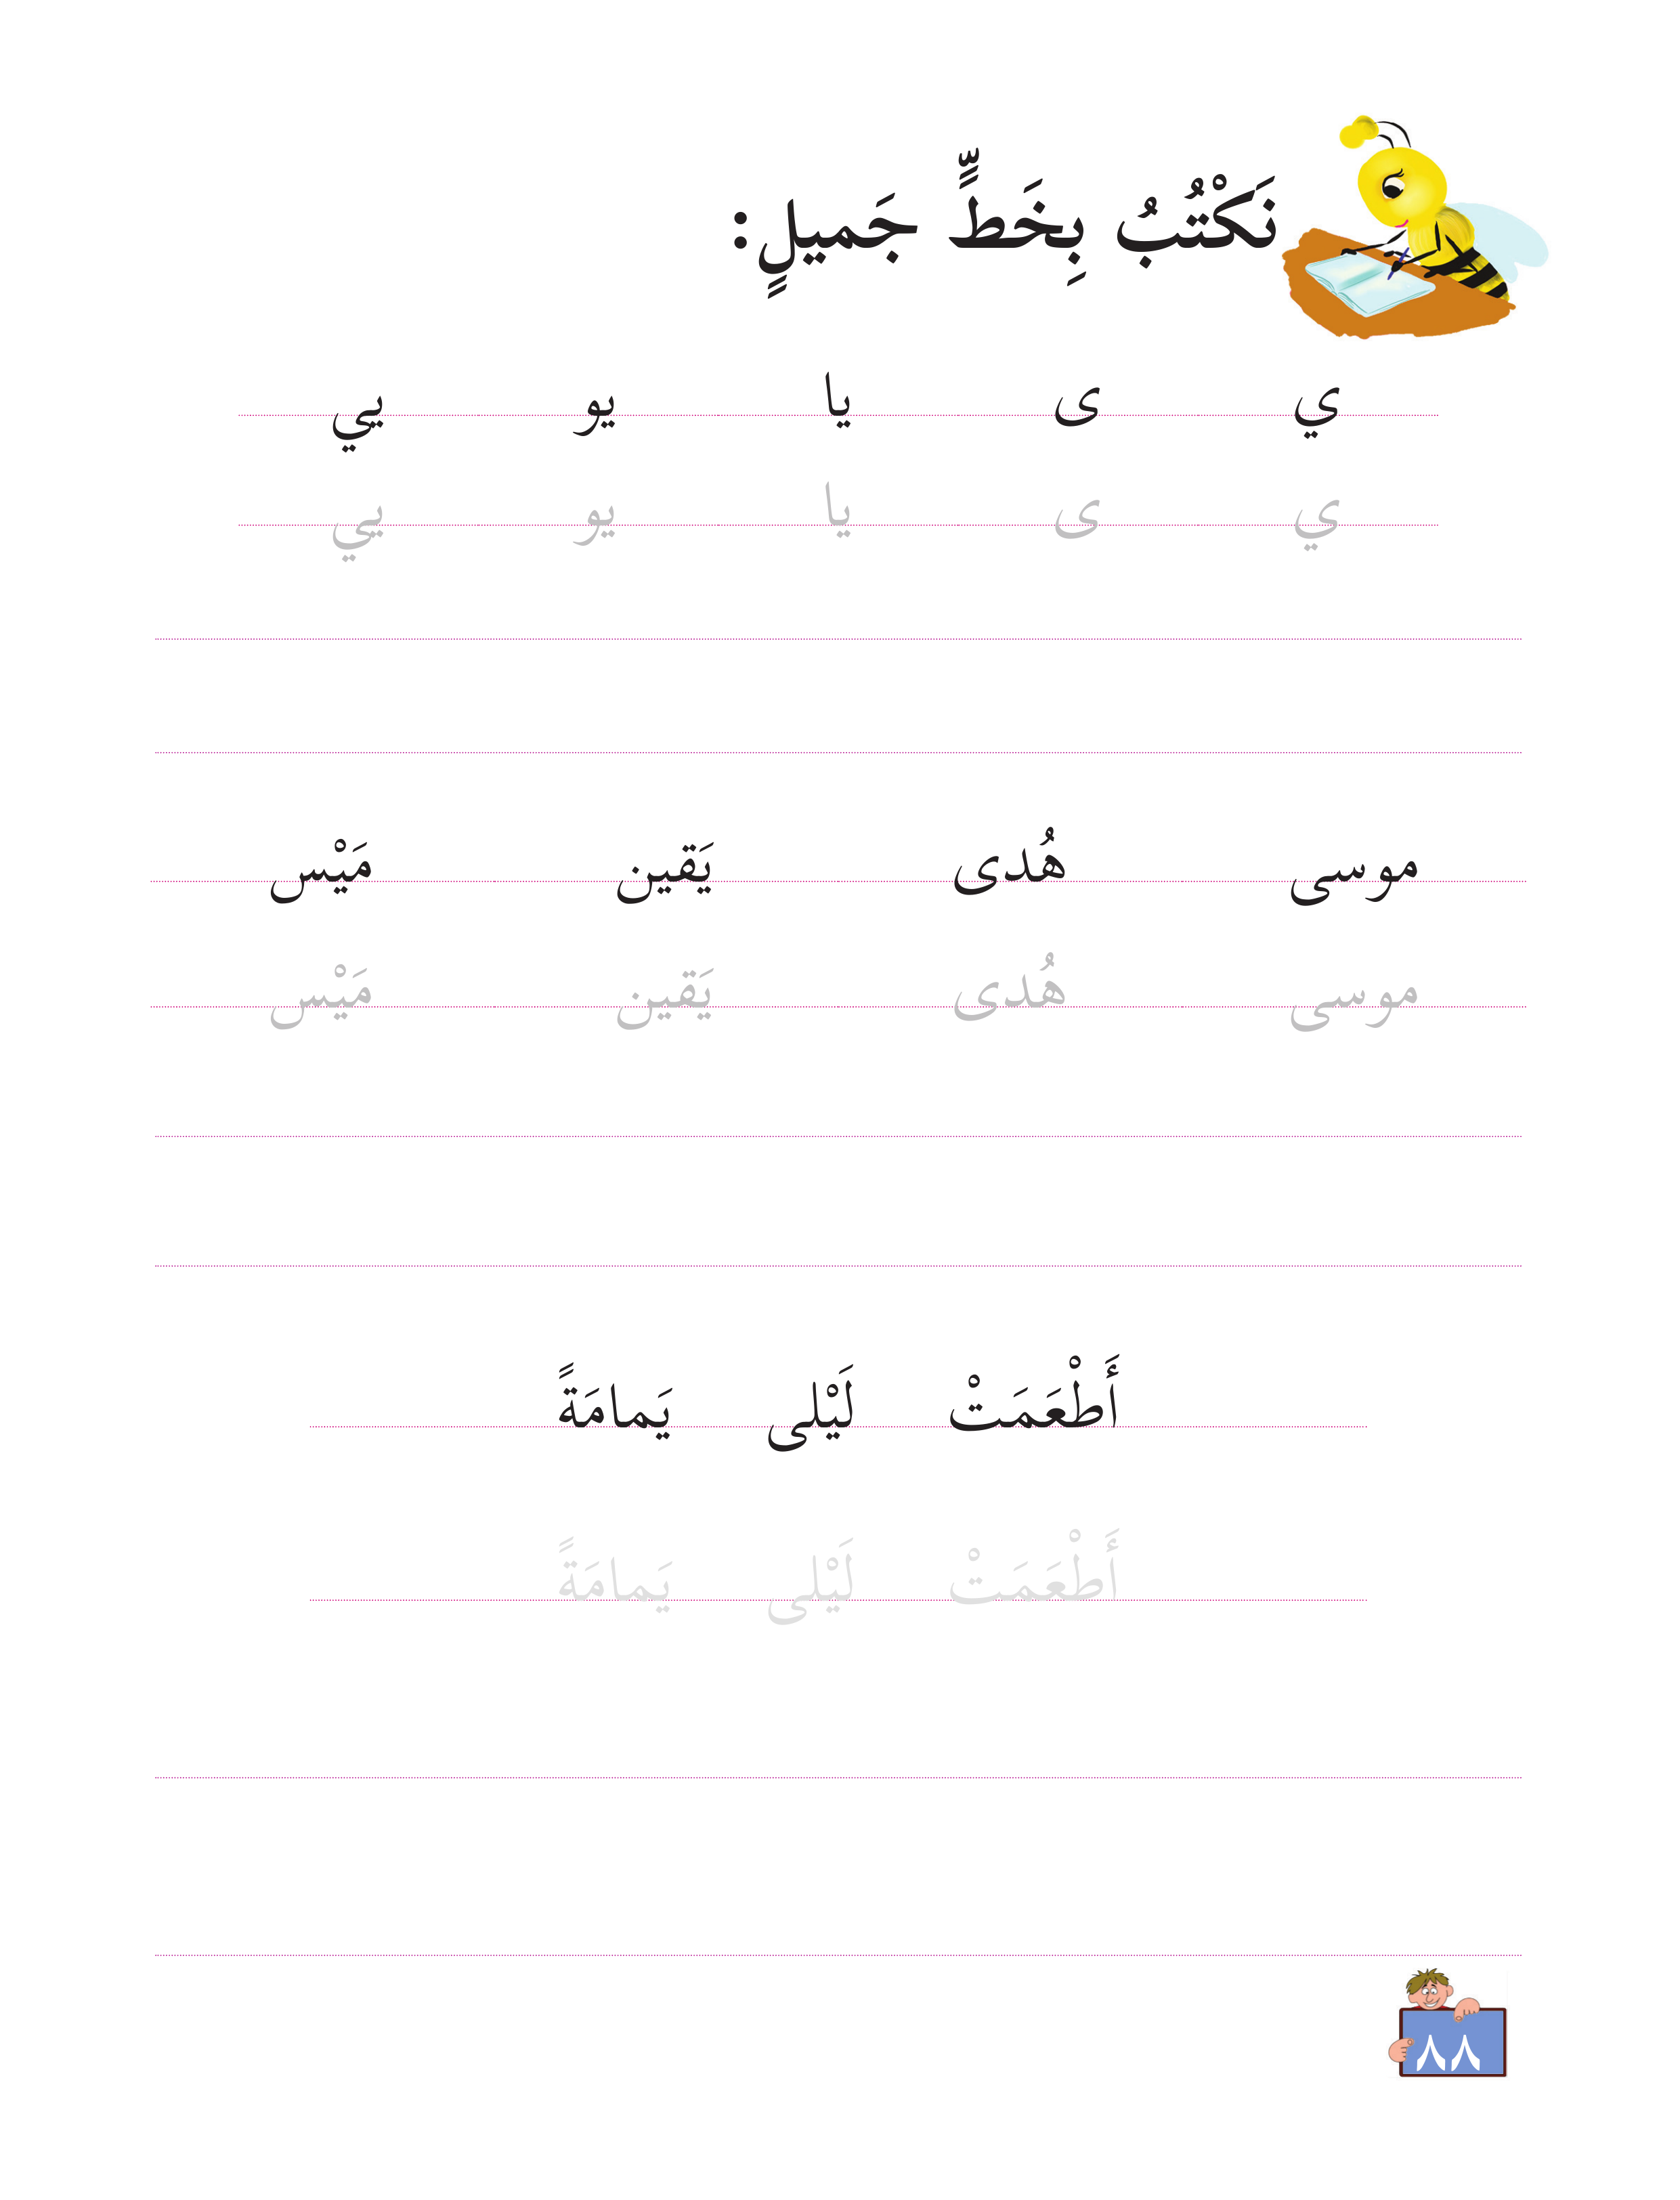 نَكْتُبُ بِخَطٍّ جَميلٍ:
ي ى يا يو يي
ي ى يا يو يي
موسى هُدى يَقين مَيْس
موسى هُدى يَقين مَيْس
أَطْعَمَتْ لَيْلى يَمامَةً
أَطْعَمَتْ لَيْلى يَمامَةً
٨٨